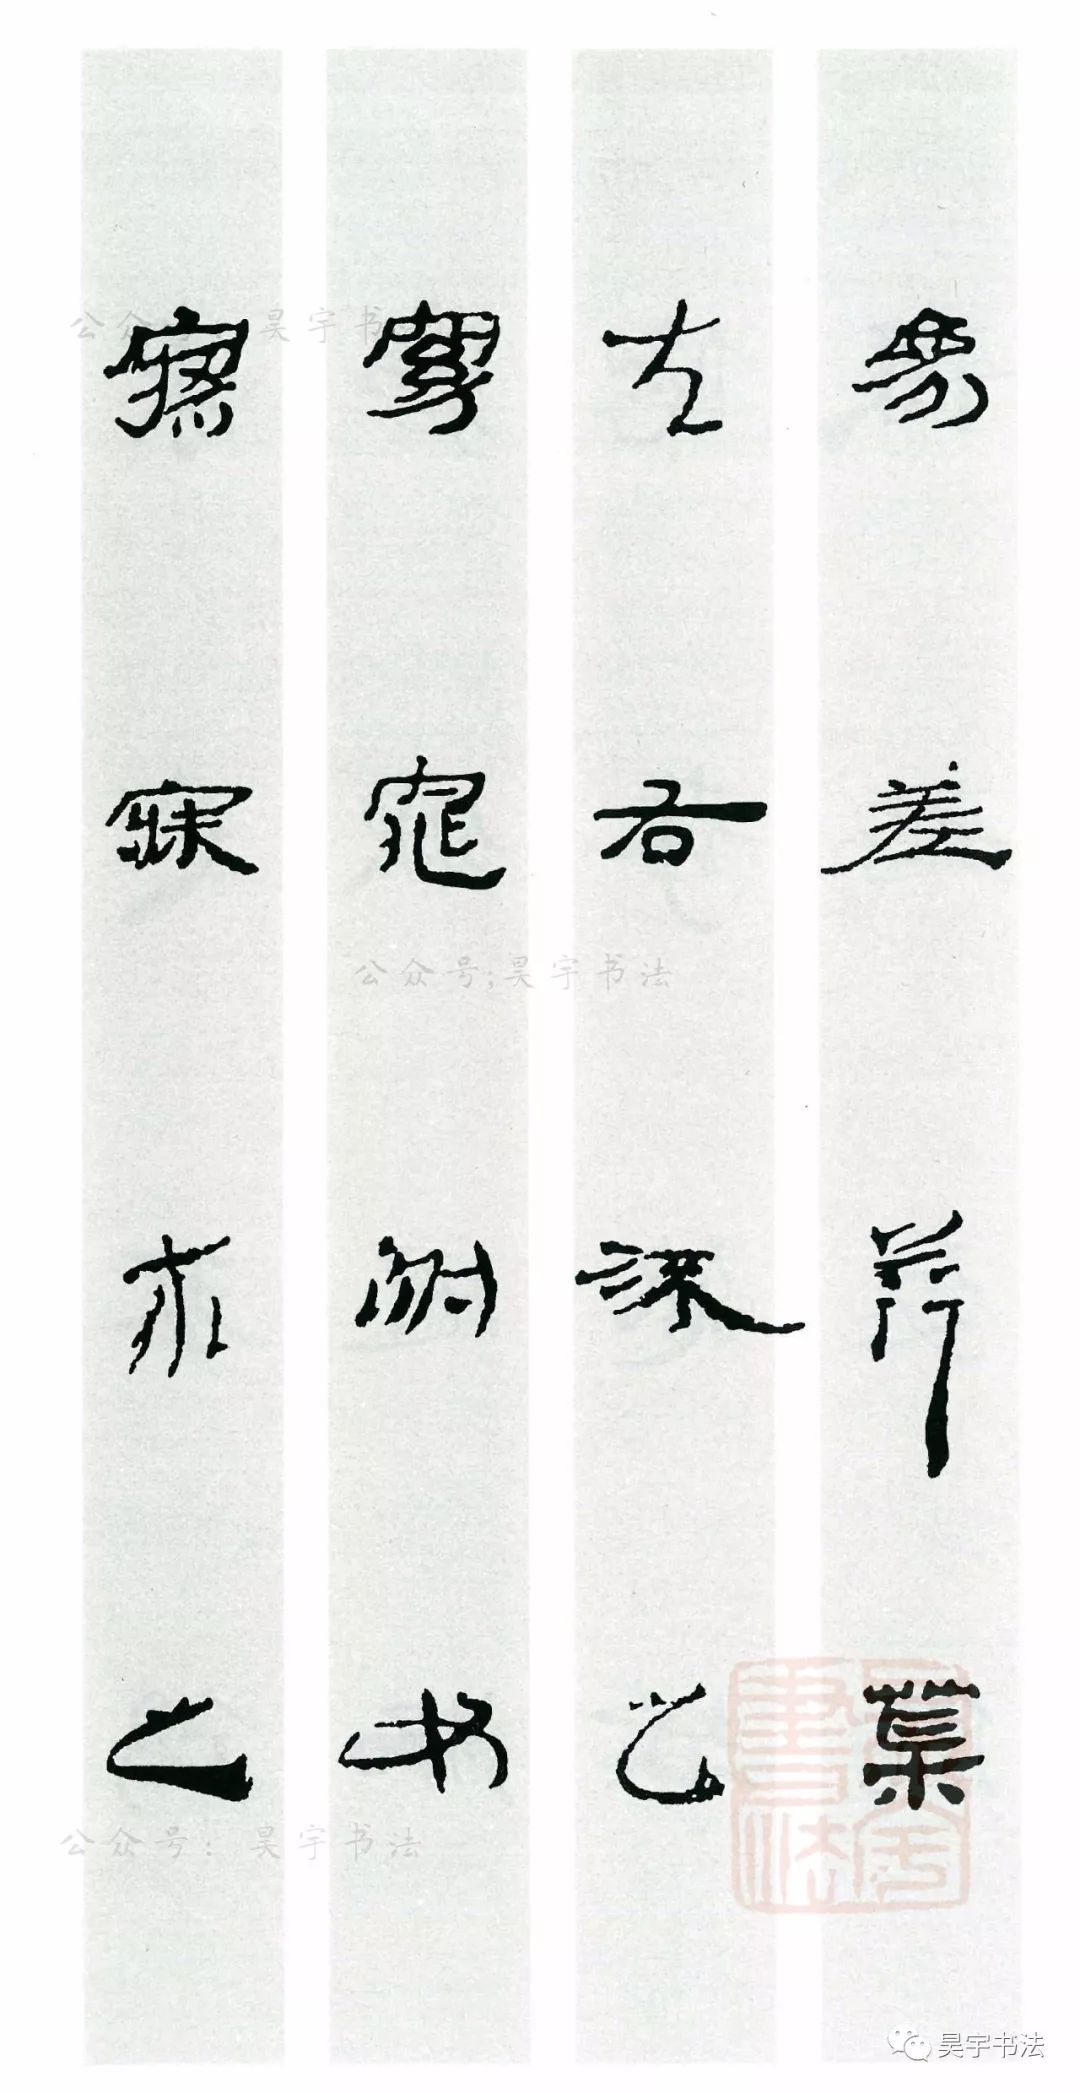 参差荇菜
左右流之
窈窕淑女
寤寐求之
公众号：昊宇书法
公众号;昊宇书法
公众号：昊宇书法
昊宇书法